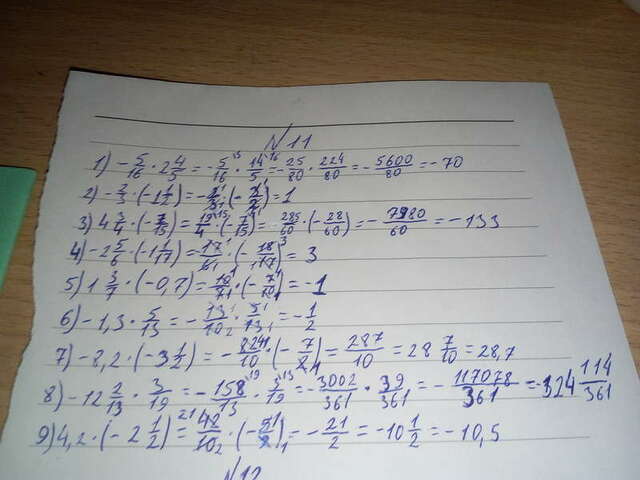 N11
1) -5/16 · 2 4/5 = -5/16 · 14/5 = -25/80 · 224/80 = -5600/80 = -70
2) -2/3 · (-1 1/2) = -2/3 · (-3/2) = 1
3) 4 3/4 · (-7/15) = 19/4 · (-7/15) = 285/60 · (-28/60) = -7980/60 = -133
4) -2 5/6 · (-1 1/17) = 17/6 · (-18/17) = 3
5) 1 3/7 · (-0,7) = 10/7 · (-7/10) = -1
6) -1,3 · 5/13 = -13/10 · 5/13 = -1/2
7) -8,2 · (-3 1/2) = -82/10 · (-7/2) = 287/10 = 28 7/10 = 28,7
8) -12 2/13 · 3/19 = -158/13 · 3/19 = -3002/361 · 39/361 = -117078/361 = -324 114/361
9) 4,2 · (-2 1/2) = 42/10 · (-5/2) = -21/2 = -10 1/2 = -10,5
N12